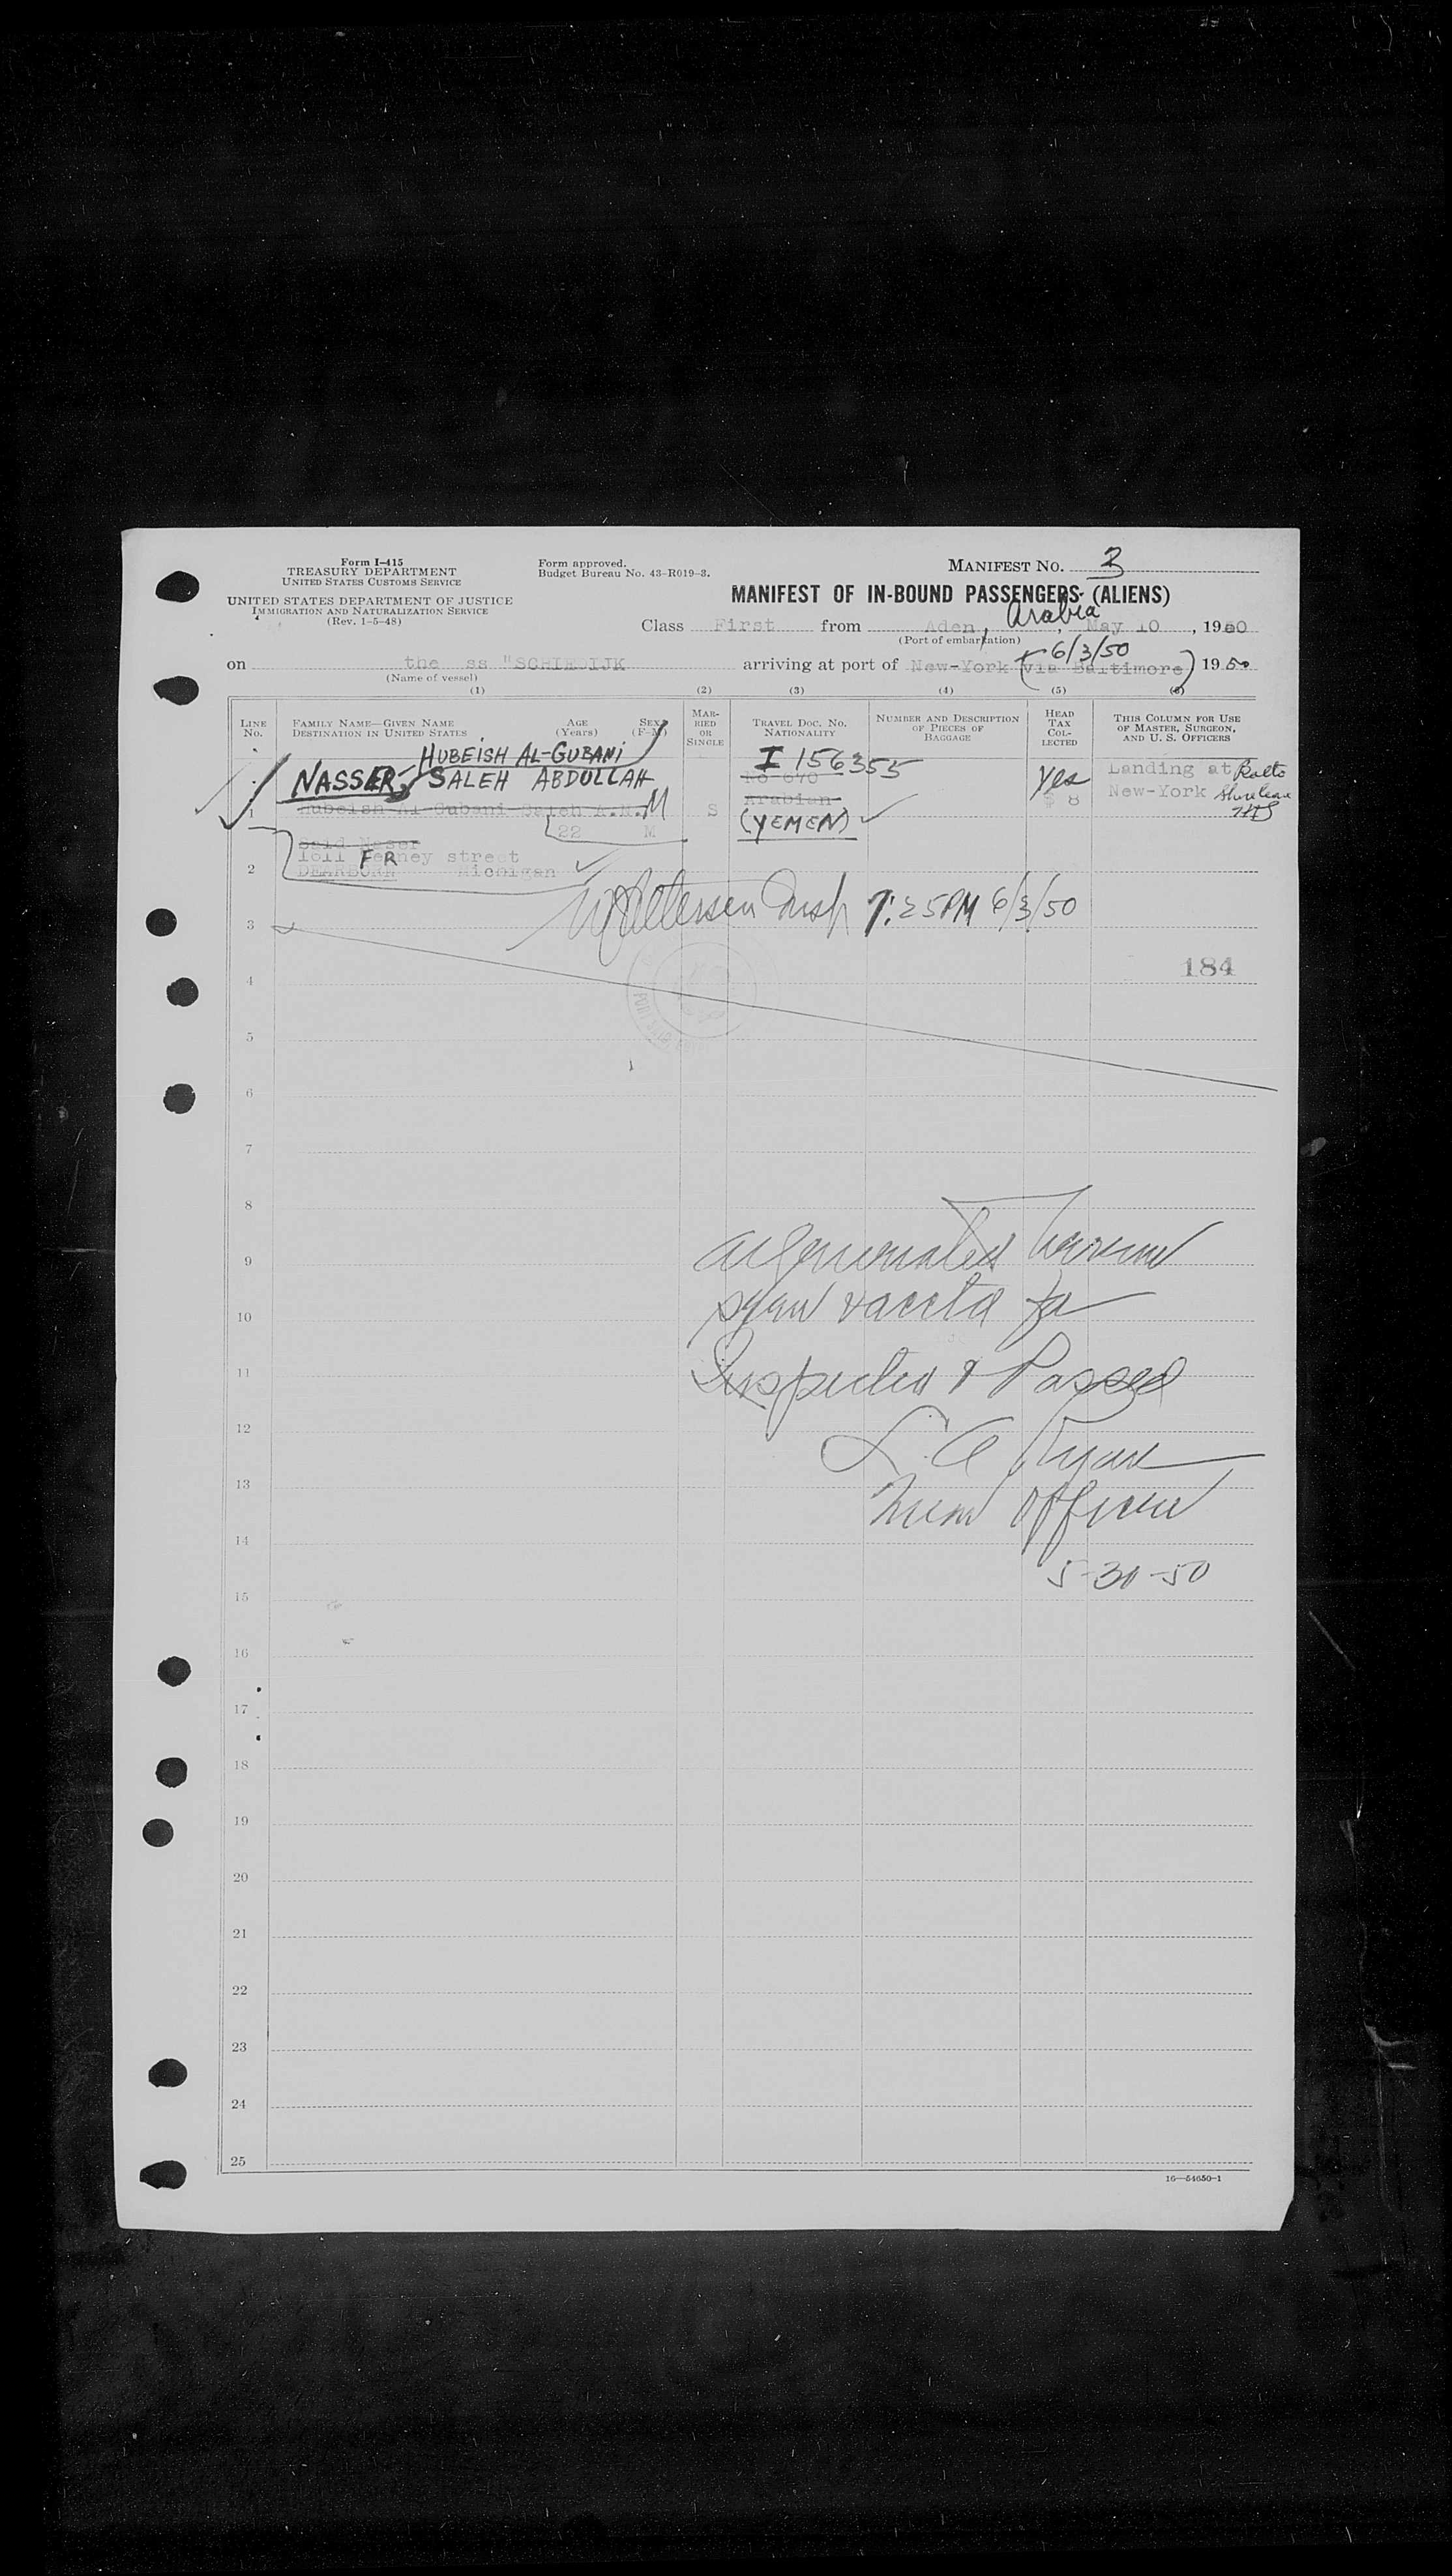 Form I-415
TREASURY DEPARTMENT
UNITED STATES CUSTOMS SERVICE
UNITED STATES DEPARTMENT OF JUSTICE
IMMIGRATION AND NATURALIZATION SERVICE
(Rev. 1-5-48)
Form approved.
Budget Bureau No. 43-R019-3.
MANIFEST NO. 3
MANIFEST OF IN-BOUND PASSENGERS (ALIENS)
Class First from Aden, Arabia, May 10, 1950
(Port of embarkation)
6/3/50
on the ss "SCHIEDIJK arriving at port of New-York (via Baltimore) 1950
(Name of vessel)
(1) (2) (3) (4) (5) (6)
LINE No. FAMILY NAME—GIVEN NAME DESTINATION IN UNITED STATES AGE (Years) SEX (F-M) MARRIED OR SINGLE TRAVEL DOC. NO. NATIONALITY NUMBER AND DESCRIPTION OF PIECES OF BAGGAGE HEAD TAX COLLECTED THIS COLUMN FOR USE OF MASTER, SURGEON, AND U. S. OFFICERS
HUBEISH AL-GUBANI I 156355
NASSER, SALEH ABDULLAH No 670 Yes Landing at Balto
1 Hubeish Al Gubani Saleh A.N. M S Arabian $ 8 New-York Shore leave
22 M (YEMEN)
Said Naser
1611 FERney street
2 DEARBORN Michigan
Insp 7:25PM 6/3/50
3
184
4
5
6
7
8
9
10
11 Inspected & Passed
12 Ryan
13 Officer
14
5-30-50
15
16
17
18
19
20
21
22
23
24
25
16—54650-1